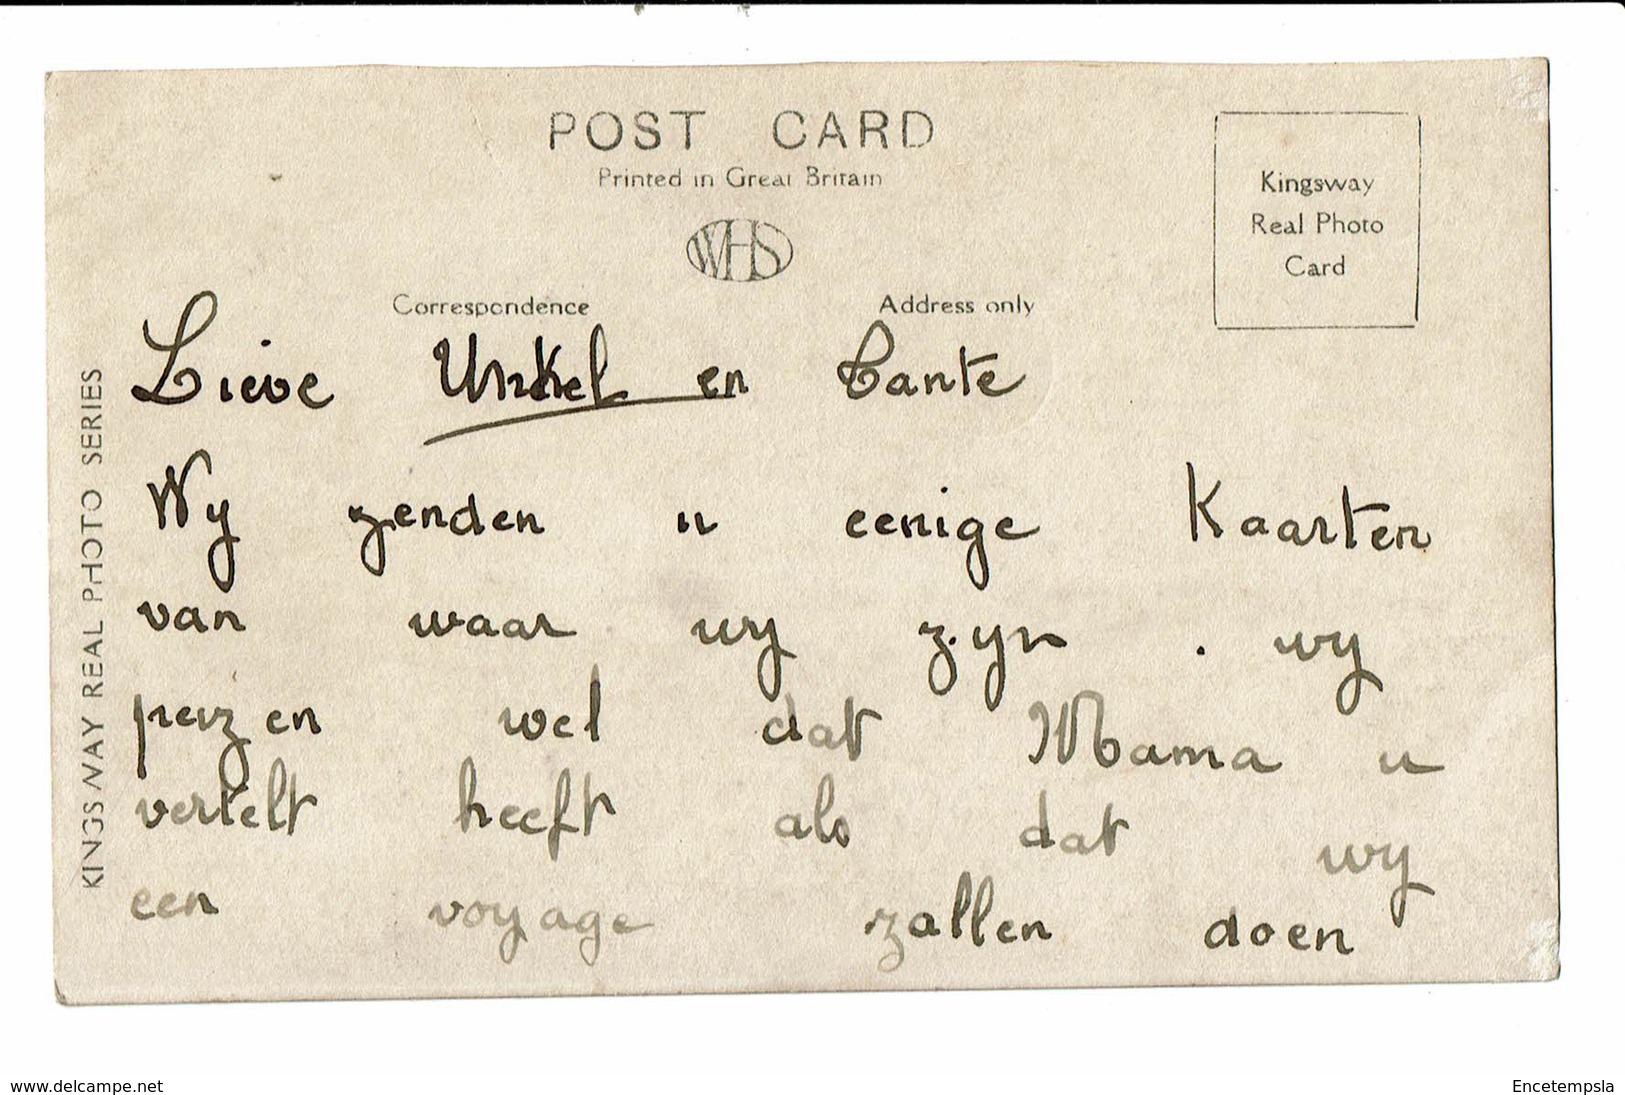 POST CARD
Printed in Great Britain
WHS
Kingsway
Real Photo
Card
Correspondence
Address only
KINGSWAY REAL PHOTO SERIES
Lieve Unkel en tante
Wy zenden u eenige Kaarten
van waar wy zyn . wy
peizen wel dat Mama u
vertelt heeft als dat wy
een voyage zallen doen
www.delcampe.net
Encetempsla